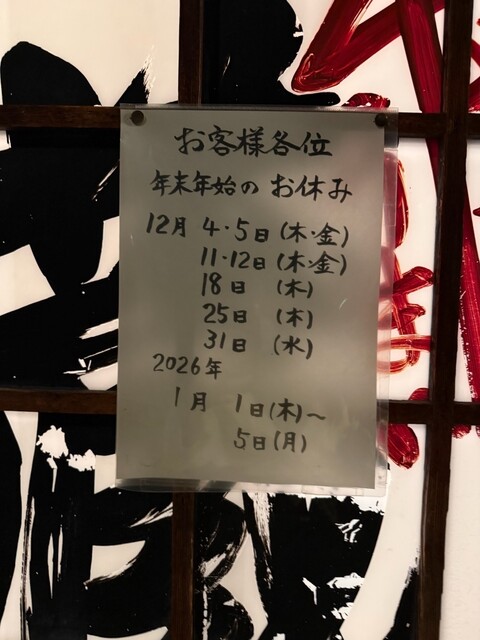 お客様各位
年末年始の お休み
12月 4・5日(木・金)
11・12日(木・金)
18日 (木)
25日 (木)
31日 (水)
2026年
1月 1日(木)～
5日(月)